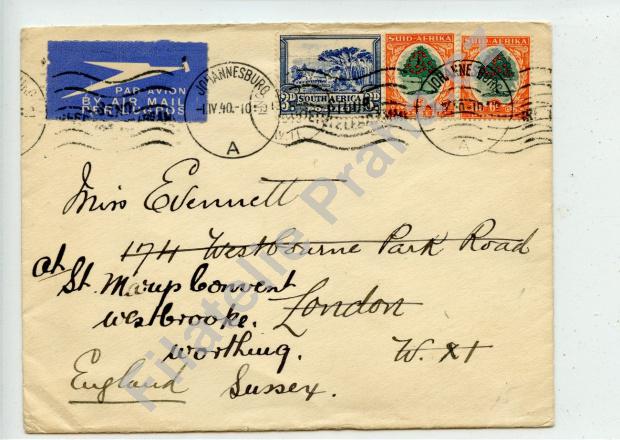 PAR AVION
BY AIR MAIL
PER LUGPOS
SOUTH AFRICA
SUID-AFRIKA
SUID-AFRIKA
JOHANNESBURG
1.IV.40.-10
A
JOHANNESBURG
A
Miss Evennett
174 Westbourne Park Road
at St. Marys Convent
London
westbrooke.
worthing.
W. XI
England
Sussex.
Filatelie Praha